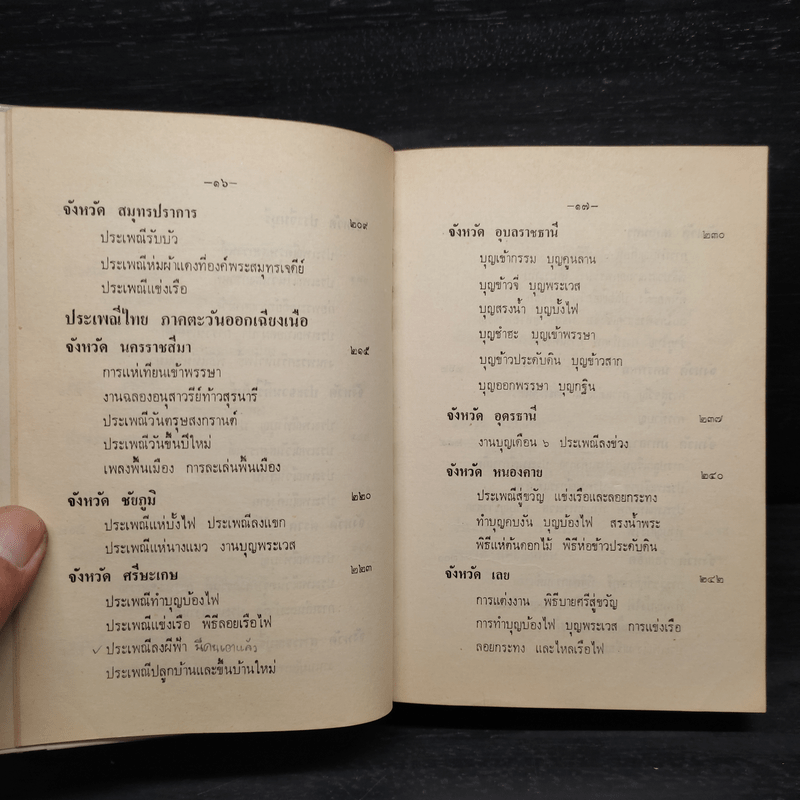 —๑๖—
จังหวัด สมุทรปราการ ๒๐๙
ประเพณีรับบัว
ประเพณีห่มผ้าแดงที่องค์พระสมุทรเจดีย์
ประเพณีแข่งเรือ
ประเพณีไทย ภาคตะวันออกเฉียงเหนือ
จังหวัด นครราชสีมา ๒๑๕
การแห่เทียนเข้าพรรษา
งานฉลองอนุสาวรีย์ท้าวสุรนารี
ประเพณีวันตรุษสงกรานต์
ประเพณีวันขึ้นปีใหม่
เพลงพื้นเมือง การละเล่นพื้นเมือง
จังหวัด ชัยภูมิ ๒๒๐
ประเพณีแห่บั้งไฟ ประเพณีลงแขก
ประเพณีแห่นางแมว งานบุญพระเวส
จังหวัด ศรีษะเกษ ๒๒๓
ประเพณีทำบุญบ้องไฟ
ประเพณีแข่งเรือ พิธีลอยเรือไฟ
✓ ประเพณีลงผีฟ้า
ประเพณีปลูกบ้านและขึ้นบ้านใหม่
—๑๗—
จังหวัด อุบลราชธานี ๒๓๐
บุญเข้ากรรม บุญคูนลาน
บุญข้าวจี่ บุญพระเวส
บุญสรงน้ำ บุญบั้งไฟ
บุญชำฮะ บุญเข้าพรรษา
บุญข้าวประดับดิน บุญข้าวสาก
บุญออกพรรษา บุญกฐิน
จังหวัด อุดรธานี ๒๓๗
งานบุญเดือน ๖ ประเพณีลงข่วง
จังหวัด หนองคาย ๒๔๐
ประเพณีสู่ขวัญ แข่งเรือและลอยกระทง
ทำบุญคบงัน บุญบ้องไฟ สรงน้ำพระ
พิธีแห่ต้นดอกไม้ พิธีห่อข้าวประดับดิน
จังหวัด เลย ๒๔๒
การแต่งงาน พิธีบายศรีสู่ขวัญ
การทำบุญบ้องไฟ บุญพระเวส การแข่งเรือ
ลอยกระทง และไหลเรือไฟ